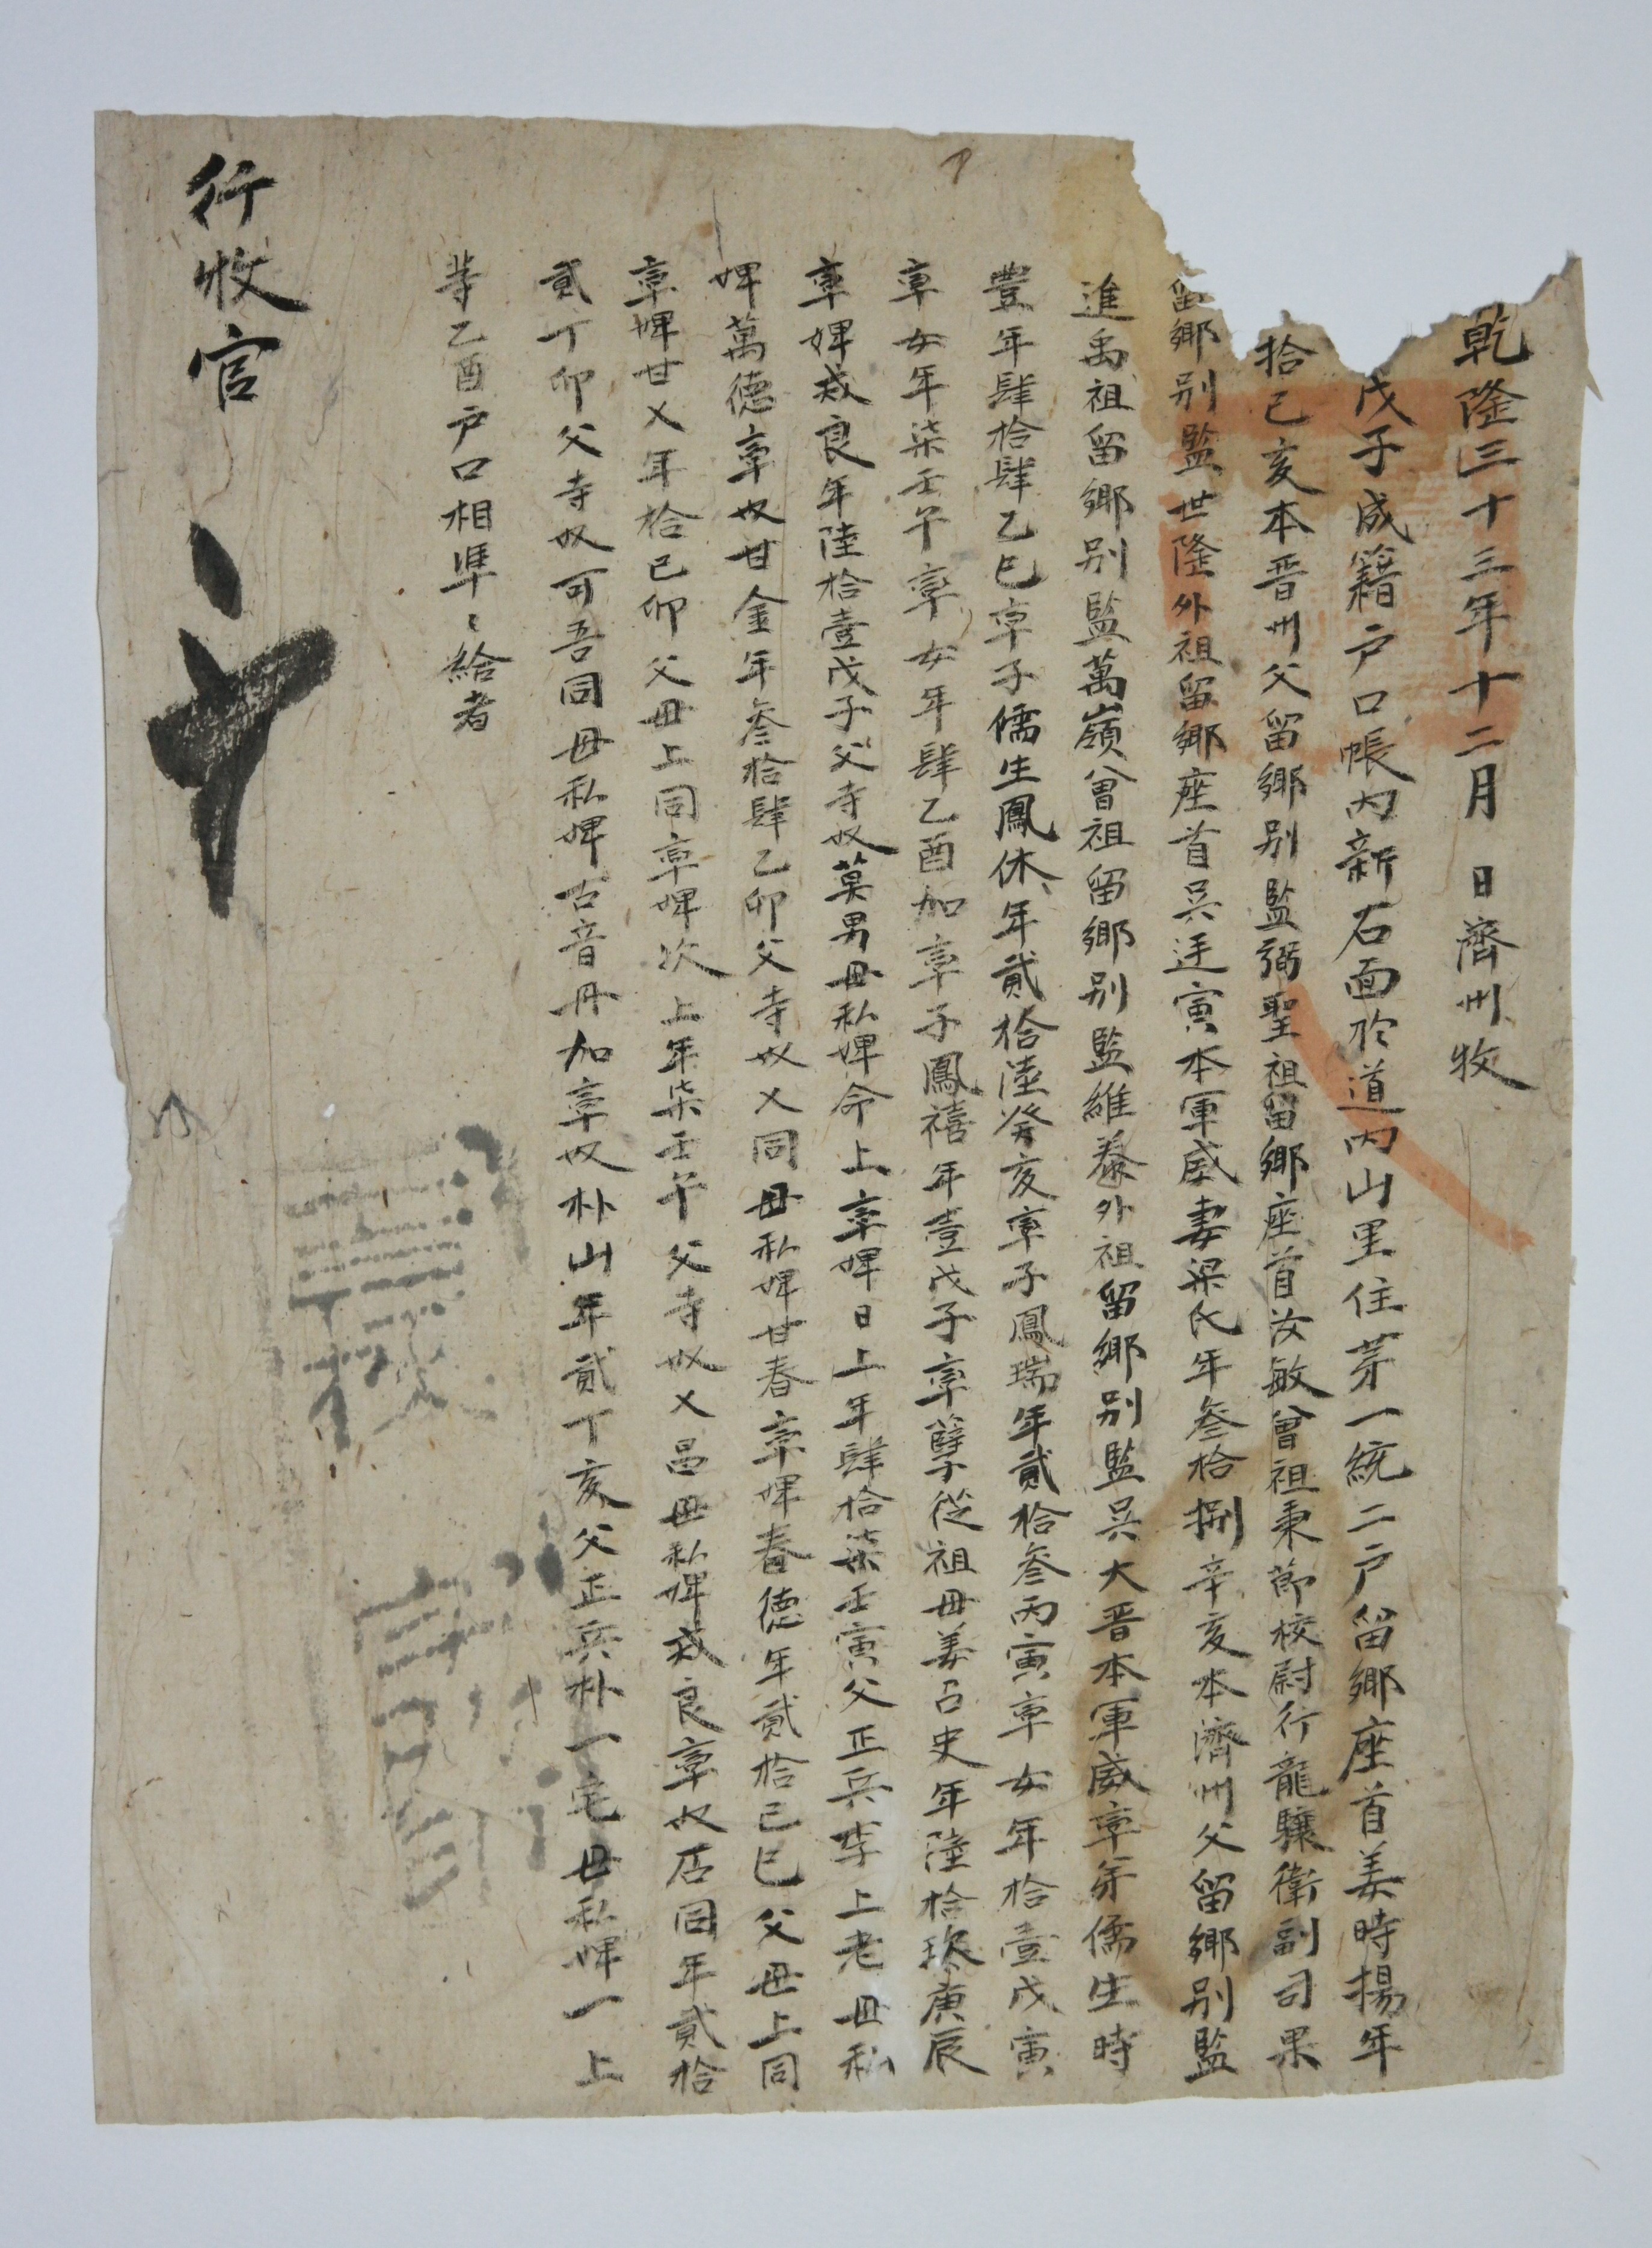 乾隆三十三年十二月　日濟州牧
戊子成籍户口帳內新右面於道內山里住第一統二户留鄉座首姜時揚年
拾己亥本晋州父留鄉别監弼聖祖留鄉座首汝敏曾祖秉節校尉行龍驤衛副司果
留鄉别監世隆外祖留鄉座首吳廷寅本軍威妻梁氏年叁拾捌辛亥本濟州父留鄉别監
進禹祖留鄉别監萬嶺曾祖留鄉别監維養外祖留鄉别監吳大晋本軍威率弟儒生時
豊年肆拾肆乙巳率子儒生鳳休年貳拾陸癸亥率子鳳瑞年貳拾叁丙寅率女年拾壹戊寅
率女年柒壬午率女年肆乙酉加率子鳳禧年壹戊子率孽從祖母姜召史年陸拾玖庚辰
率婢戒良年陸拾壹戊子父寺奴莫男母私婢命上率婢日上年肆拾柒壬寅父正兵李上老母私
婢萬德率奴甘金年叁拾肆乙卯父寺奴㐅同母私婢甘春率婢春德年貳拾己巳父母上同
率婢甘㐅年拾己卯父母上同率婢次上年柒壬午父寺奴㐅昌母私婢戒良率奴店同年貳拾
貳丁卯父寺奴可吾同母私婢古音丹加率奴朴山年貳丁亥父正兵朴一宅母私婢一上
等乙酉户口相準〻給者
行牧官